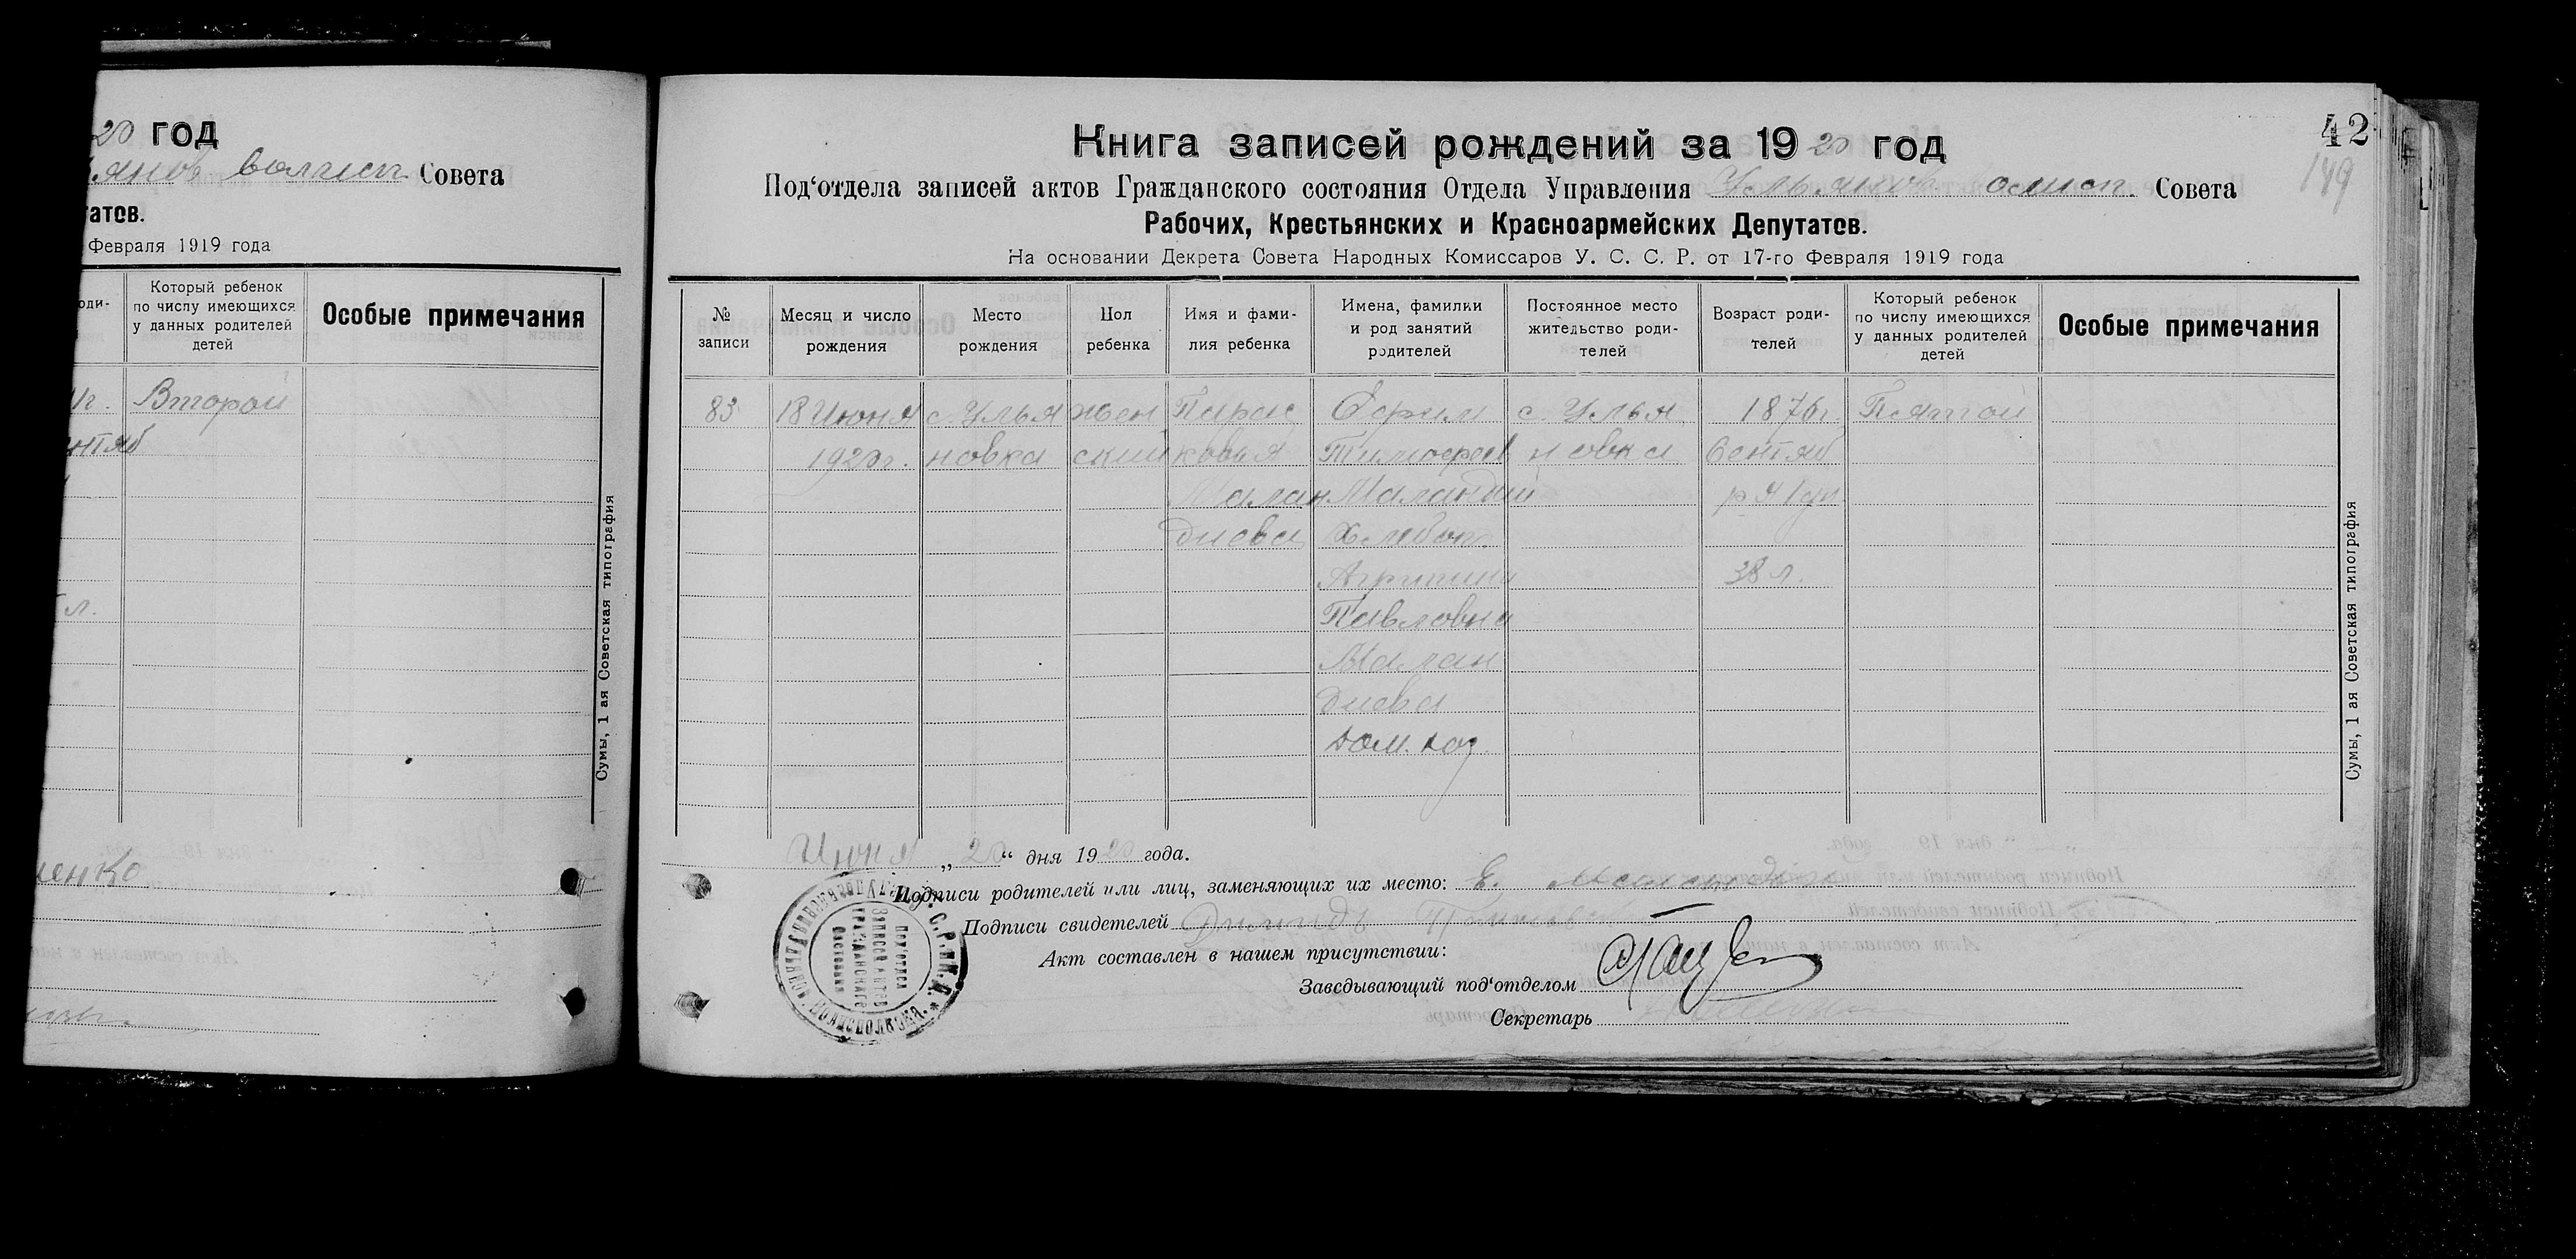 20 год
янов волисп. Совета
татов.
Февраля 1919 года
оди-
Который ребенок
по числу имеющихся
у данных родителей
детей
Особые примечания
Второй
нтяб
л.
енко
Сумы, 1 ая Советская типография
42
149
Книга записей рождений за 1920 год
Под‘отдела записей актов Гражданского состояния Отдела Управления Ульянов. волисп. Совета
Рабочих, Крестьянских и Красноармейских Депутатов.
На основании Декрета Совета Народных Комиссаров У. С. С. Р. от 17-го Февраля 1919 года
№
записи
Месяц и число
рождения
Место
рождения
Пол
ребенка
Имя и фами-
лия ребенка
Имена, фамилии
и род занятий
родителей
Постоянное место
жительство роди-
телей
Возраст роди-
телей
Который ребенок
по числу имеющихся
у данных родителей
детей
Особые примечания
83 18 Июня с. Улья жен Парас Ефрем с. Улья 1876г. Пятой
1920г. новка ский ковья Тимофеев новка Сентяб
Малан Маландий ря 1 дн
диева Хлебоп.
Агрипина 38 л.
Павловна
Малан
диева
дом. хоз.
Июня „20“ дня 1920 года.
Подписи родителей или лиц, заменяющих их место: Е.
Подписи свидетелей
Акт составлен в нашем присутствии:
Заведывающий под‘отделом
Секретарь
Под‘отдел
Записей актов
Гражданскаго
Состояния
Сумы, 1 ая Советская типография